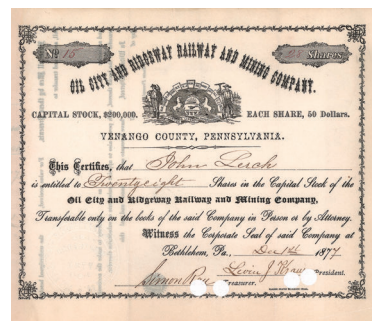 No 15
Shares
OIL CITY AND RIDGEWAY RAILWAY AND MINING COMPANY.
CAPITAL STOCK, $200,000. EACH SHARE, 50 Dollars.
VENANGO COUNTY, PENNSYLVANIA.
This Certifies, that John Lerch
is entitled to Twentyeight Shares in the Capital Stock of the
Oil City and Ridgeway Railway and Mining Company,
Transferable only on the books of the said Company in Person or by Attorney.
Witness the Corporate Seal of said Company at
Bethlehem, Pa., Dec 1st 1877
Levin J Krause President.
Simon Rau Treasurer.